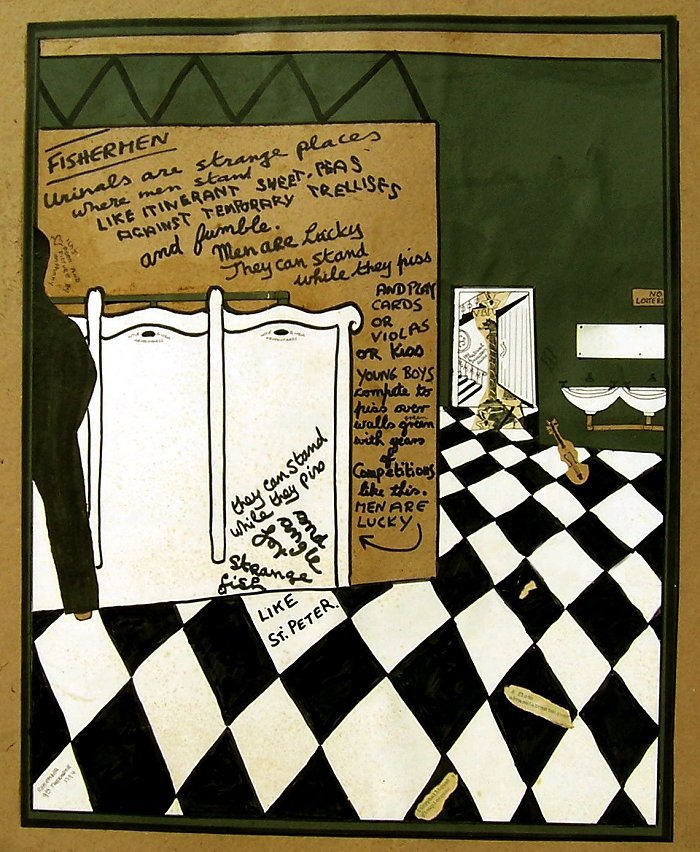 FISHERMEN
Urinals are strange places
where men stand
LIKE ITINERANT SWEET-PEAS
AGAINST TEMPORARY TRELLISES
and fumble.
Men are Lucky
They can stand
while they piss
AND PLAY
CARDS
OR
VIOLAS
OR Kiss
YOUNG BOYS
compete to
piss over
walls green
with years
of
Competitions
like this.
MEN ARE
LUCKY
they can stand
while they piss
and
angle
for
Strange
fish
LIKE
ST. PETER.
NO